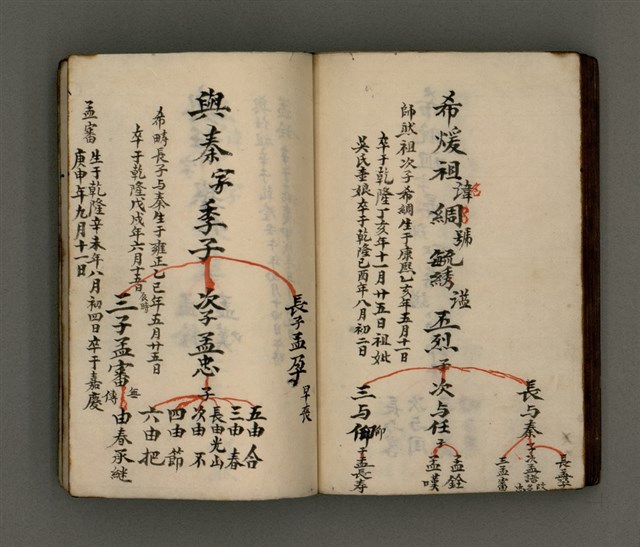 希煖祖諱綢號毓綉謚五烈子
師然祖次子希綢生于康熙乙亥年五月十一
卒于乾隆丁亥年十一月廿五日祖妣
吳氏壼娘卒于乾隆己酉年八月初二日
長与秦子
長孟孕
次孟
三孟審
次与任子
孟銓
孟嘆
三与仰
仰
子孟長寿
與秦字季子
希疇長子与秦生于雍正乙巳年五月廿五
卒于乾隆戊戌年六月十五日
長子孟孕 早喪
次子孟忠 子
五由合
三由春
長由光山
次由不
四由節
六由把
三子孟審
無傳
由春承継
孟審 生于乾隆辛未年八月初四日卒于嘉慶
庚申年九月十一日